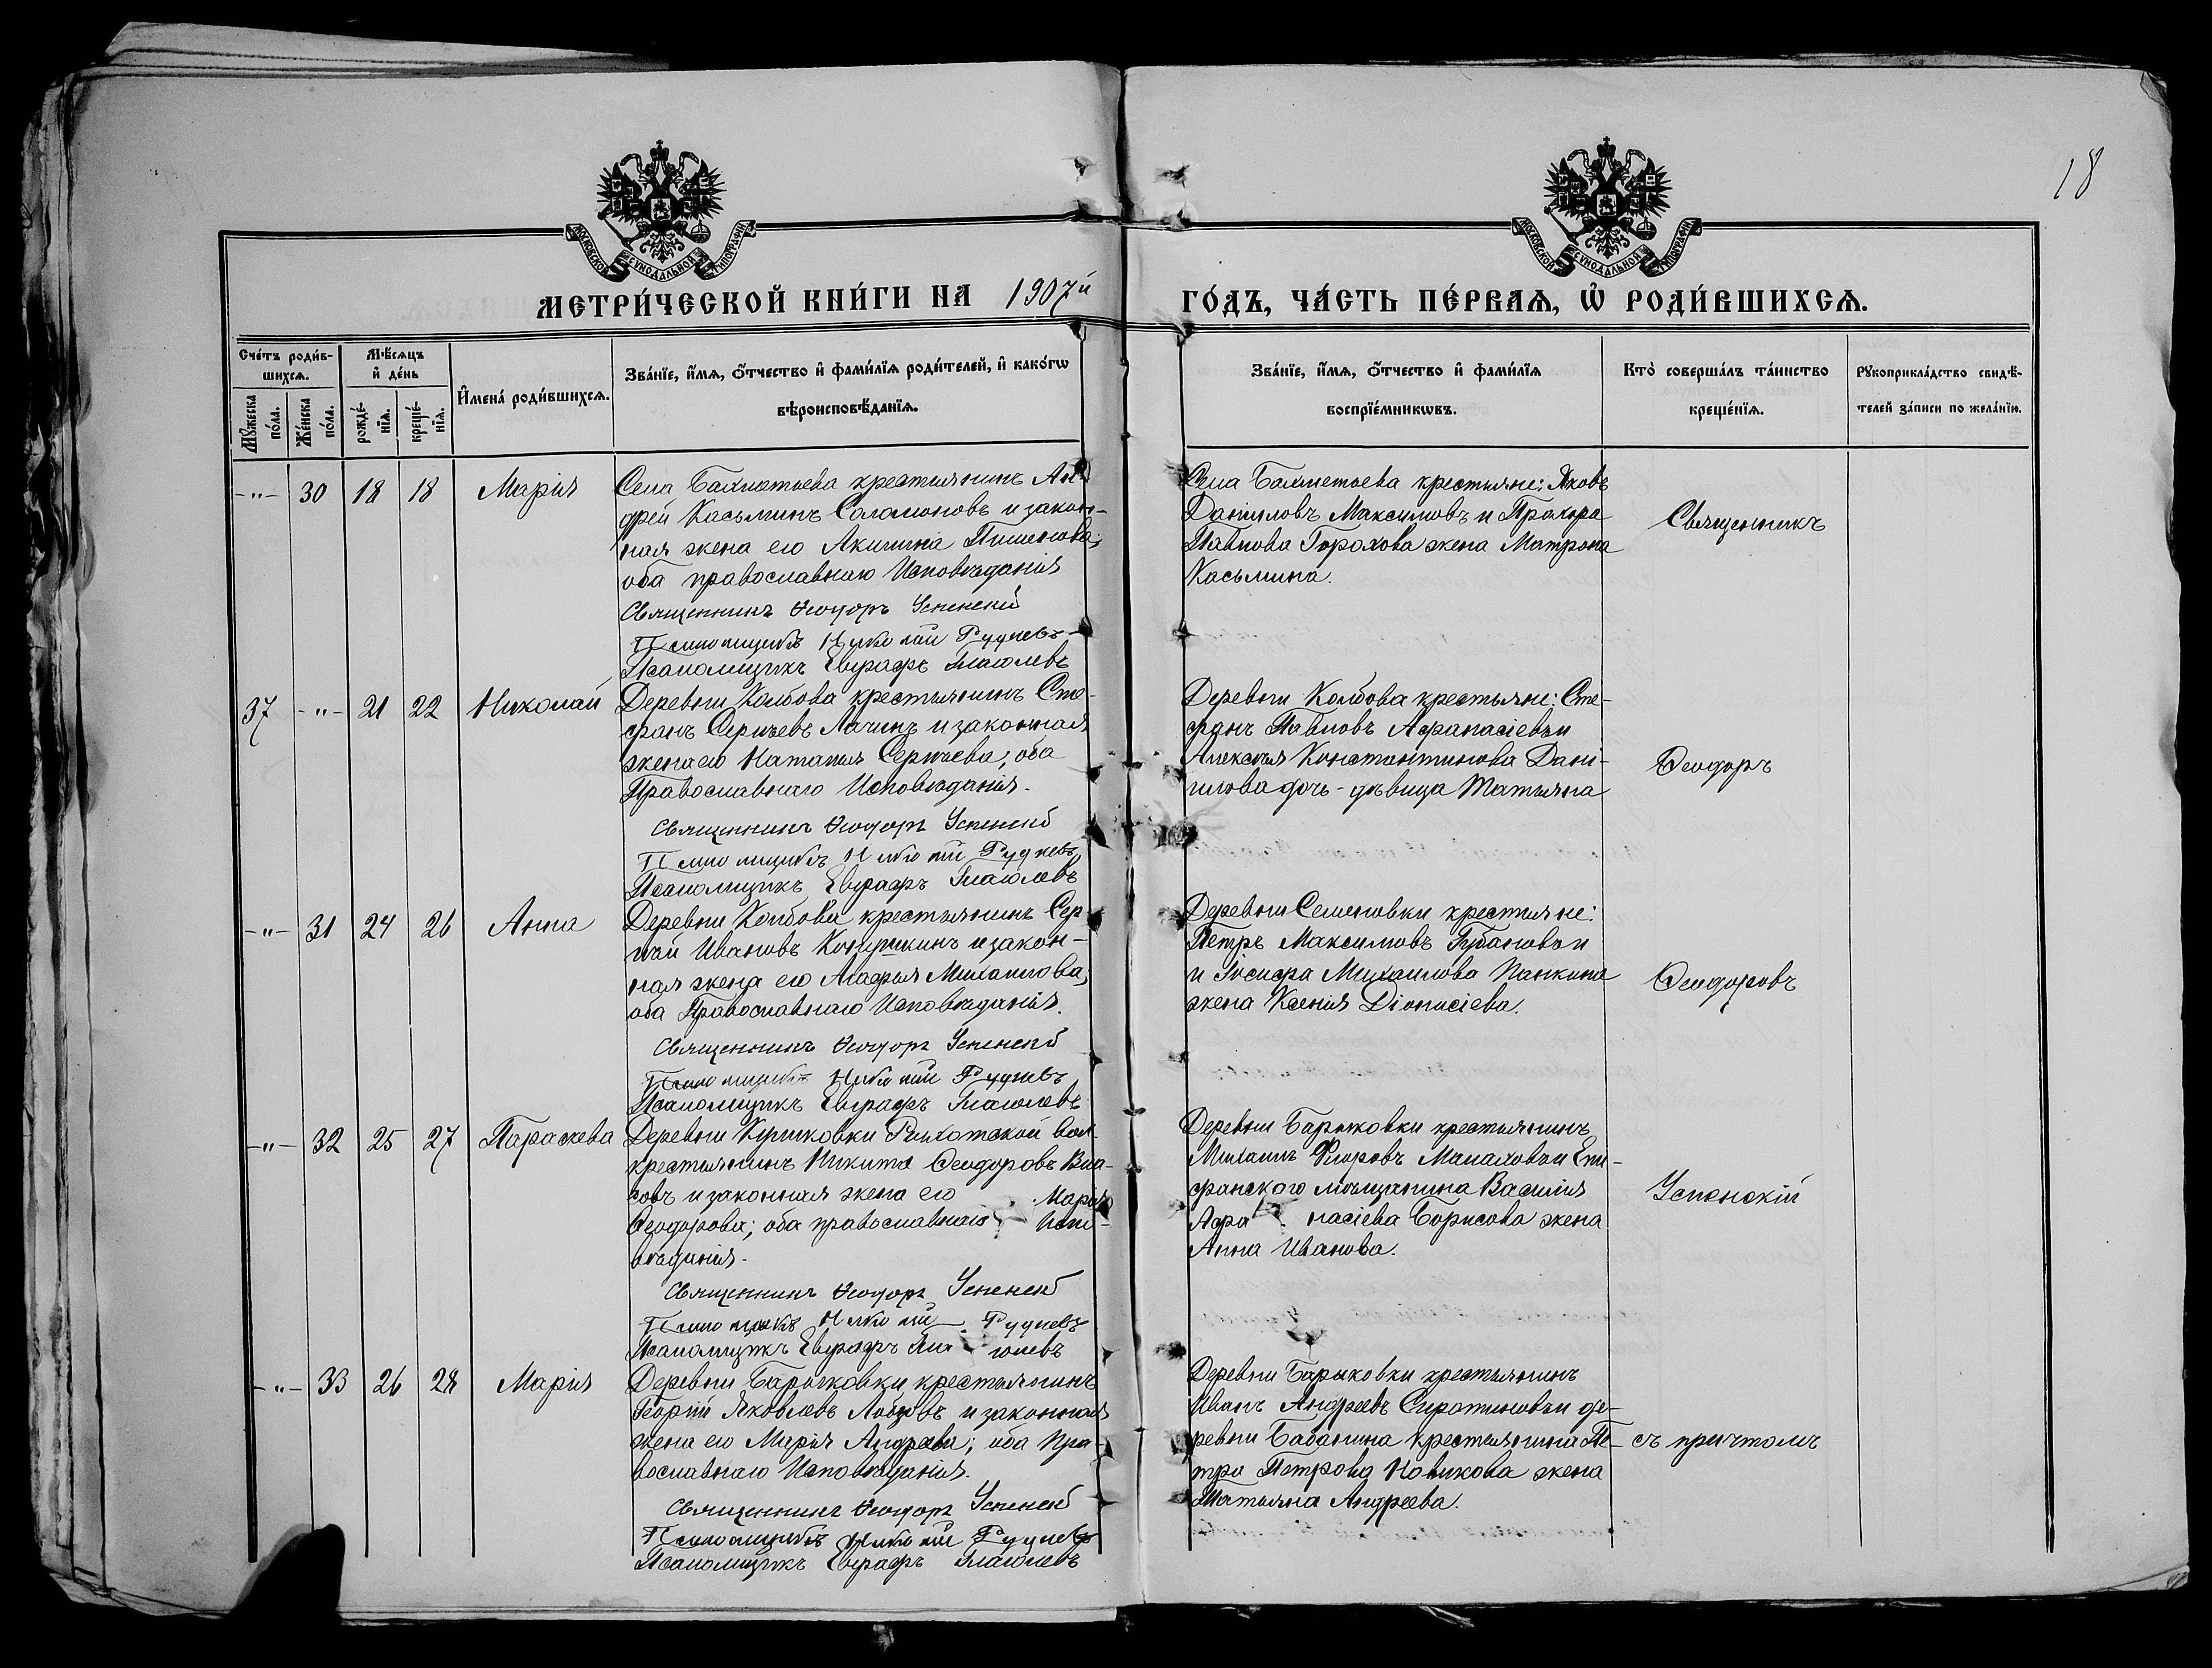 18
МОСКОВСКОЙ СѴНОДАЛЬНОЙ ТИПОГРАФІИ
МОСКОВСКОЙ СѴНОДАЛЬНОЙ ТИПОГРАФІИ
МЕТРИ́ЧЕСКОЙ КНИ́ГИ НА 1907й ГО́ДЪ, ЧА́СТЬ ПЕ́РВАѦ, Ѡ҆ РОДИ́ВШИХСѦ.
Сче́тъ роди́в-
шихсѧ.
Мꙋ́жеска по́ла.
Же́нска по́ла.
Мѣ́сѧцъ
и҆ де́нь
рожде́-
нїѧ.
креще́-
нїѧ.
И҆мена̀ роди́вшихсѧ.
Зва́нїе, и҆́мѧ, ѻ҆́тчество и҆ фами́лїѧ роди́телей, и҆ како́гѡ
вѣроисповѣ́данїѧ.
Зва́нїе, и҆́мѧ, ѻ҆́тчество и҆ фами́лїѧ
воспрїе́мникѡвъ.
Кто̀ соверша́лъ та́инство
креще́нїѧ.
Рꙋкоприкла́дство свидѣ́-
телей за́писи по жела́нїю.
-"- 30 18 18 Марія
Села Бахметьева крестьянинъ Ан-
дрей Касьминъ Саломоновъ и закон-
ная жена его Акилина Пименова;
оба православнаго Исповѣданія
Священникъ Ѳеодоръ Успенскій
Псаломщикъ Николай Рудневъ
Псаломщикъ Евграфъ Глаголевъ
Села Бахметьева крестьяне: Яковъ
Даниловъ Максимовъ и Прохора
Павлова Горохова жена Матрона
Касьмина.
Священникъ
37 -"- 21 22 Николай
Деревни Колбова крестьянинъ Сте-
фанъ Сергѣевъ Лачинъ и законная
жена его Наталья Сергѣева; оба
Православнаго Исповѣданія.
Священникъ Ѳеодоръ Успенскій
Псаломщикъ Николай Рудневъ
Псаломщикъ Евграфъ Глаголевъ
Деревни Колбова крестьяне: Сте-
фанъ Павловъ Афанасіевъ и
Алексѣя Константинова Дани-
лова дочь-дѣвица Татьяна
Ѳеодоръ
-"- 31 24 26 Анна
Деревни Колбова крестьянинъ Сер-
гѣй Ивановъ Кокушкинъ и закон-
ная жена его Агафья Михаилова;
оба Православнаго Исповѣданія.
Священникъ Ѳеодоръ Успенскій
Псаломщикъ Николай Рудневъ
Псаломщикъ Евграфъ Глаголевъ
Деревни Семеновки крестьяне:
Петръ Максимовъ Губановъ и
и Іосифа Михаилова Панкина
жена Ксенія Діонисіева.
Ѳеодоровъ
-"- 32 25 27 Параскева
Деревни Куликовки Рыхотской вол.
крестьянинъ Никита Ѳеодоровъ Вла-
совъ и законная жена его Марія
Ѳеодорова; оба православнаго Испо-
вѣданія.
Священникъ Ѳеодоръ Успенскій
Псаломщикъ Николай Рудневъ
Псаломщикъ Евграфъ Глаголевъ
Деревни Барыковки крестьянинъ
Михаилъ Флоровъ Малаховъ и Епи-
фанского мѣщанина Василія
Афанасіева Борисова жена
Анна Иванова.
Успенскій
-"- 33 26 28 Марія
Деревни Барыковки крестьянинъ
Георгій Яковлевъ Лобовъ и законная
жена его Марія Андреева; оба Пра-
вославнаго Исповѣданія.
Священникъ Ѳеодоръ Успенскій
Псаломщикъ Николай Рудневъ
Псаломщикъ Евграфъ Глаголевъ
Деревни Барыковки крестьянинъ
Иванъ Андреевъ Сиротиновъ и де-
ревни Бабанина крестьянина Пе-
тра Петрова Новикова жена
Татьяна Андреева.
съ причтомъ